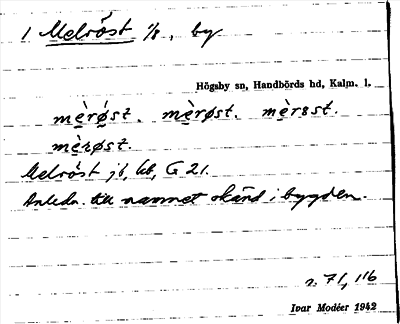 1 Melröst 1/8, by
Högsby sn, Handbörds hd, Kalm. l.
mè̱rø̱st. mè̱røst. mè̱rɛst.
mè̱røst.
Melröst jb, kb, G 21.
Anledn. till namnet okänd i bygden.
s. 71, 116
Ivar Modéer 1942